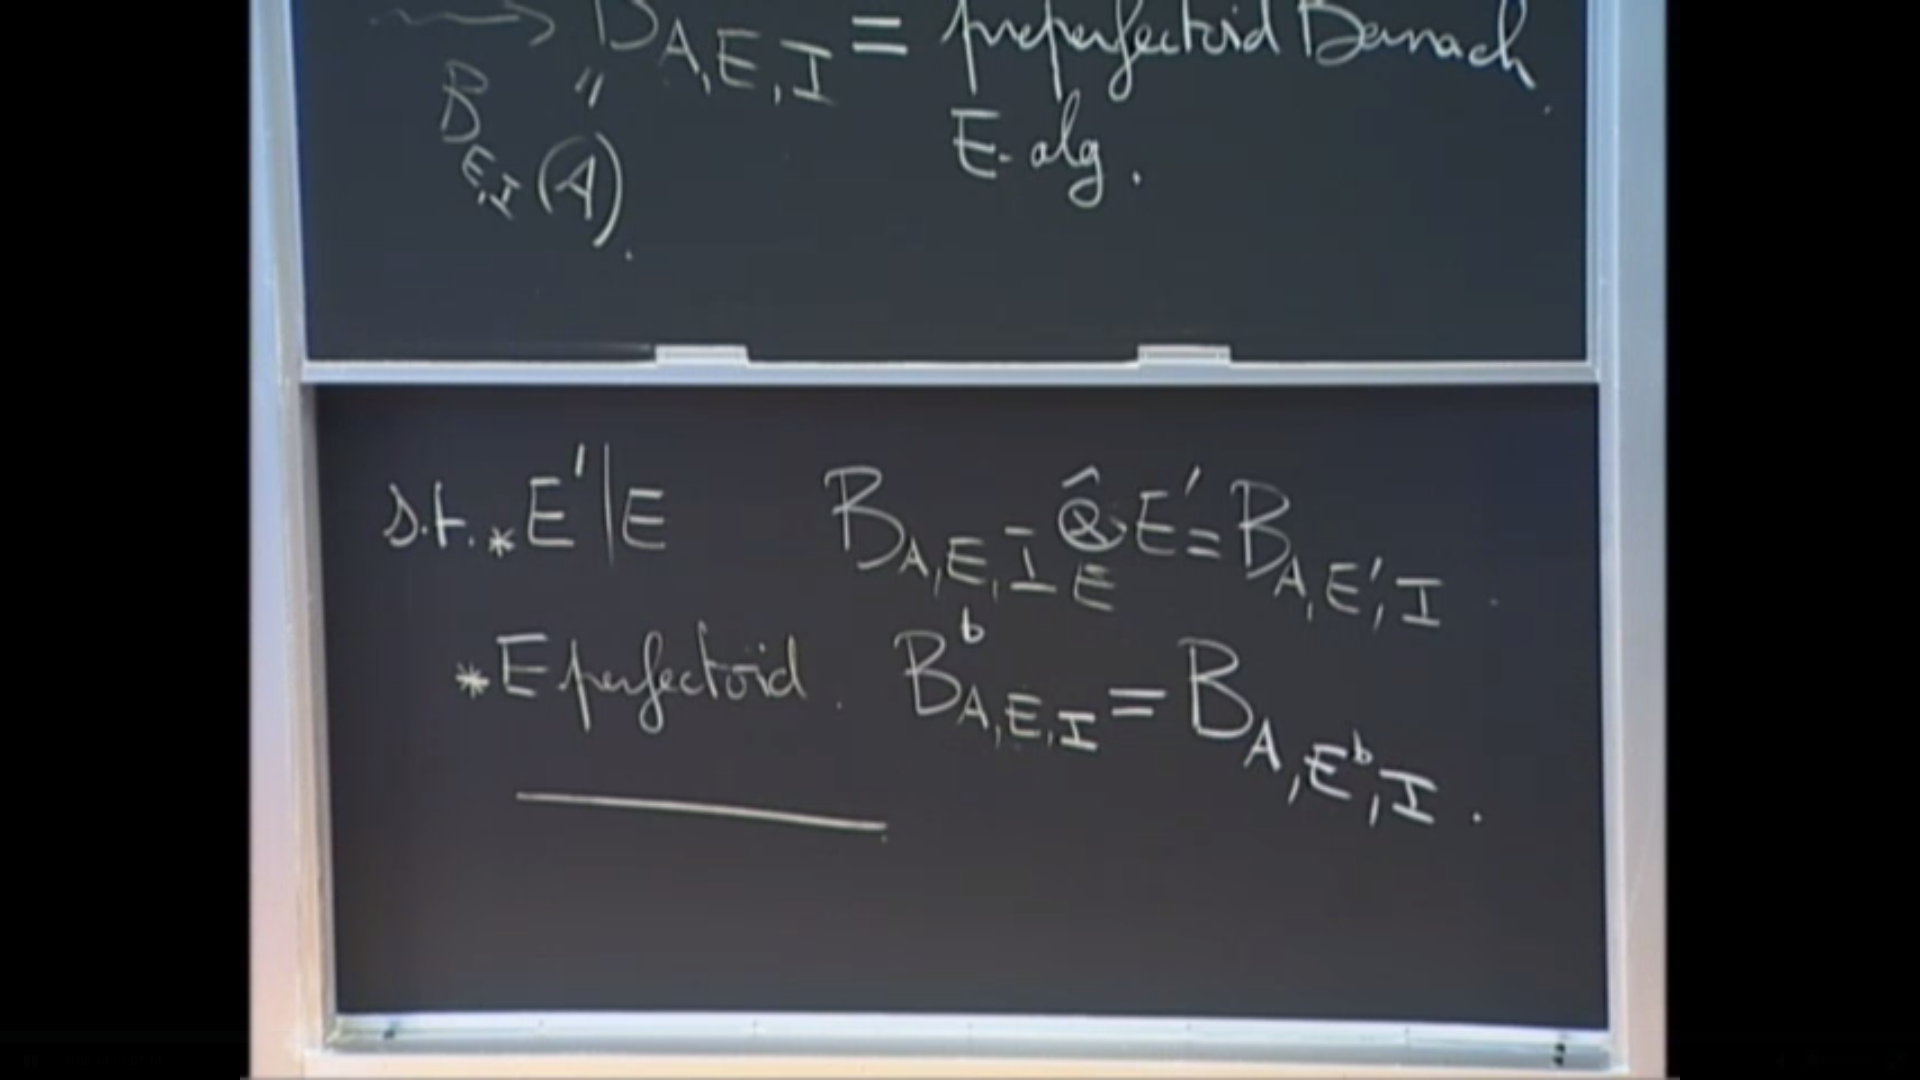 ⟶ B_{A,E,I} = preperfectoid Banach
"
B_{E,I}(A).
E-alg.
s.t. * E'|E B_{A,E,I} ⊗̂_E E' = B_{A,E',I}.
* E perfectoid. B^♭_{A,E,I} = B_{A,E^♭,I}.